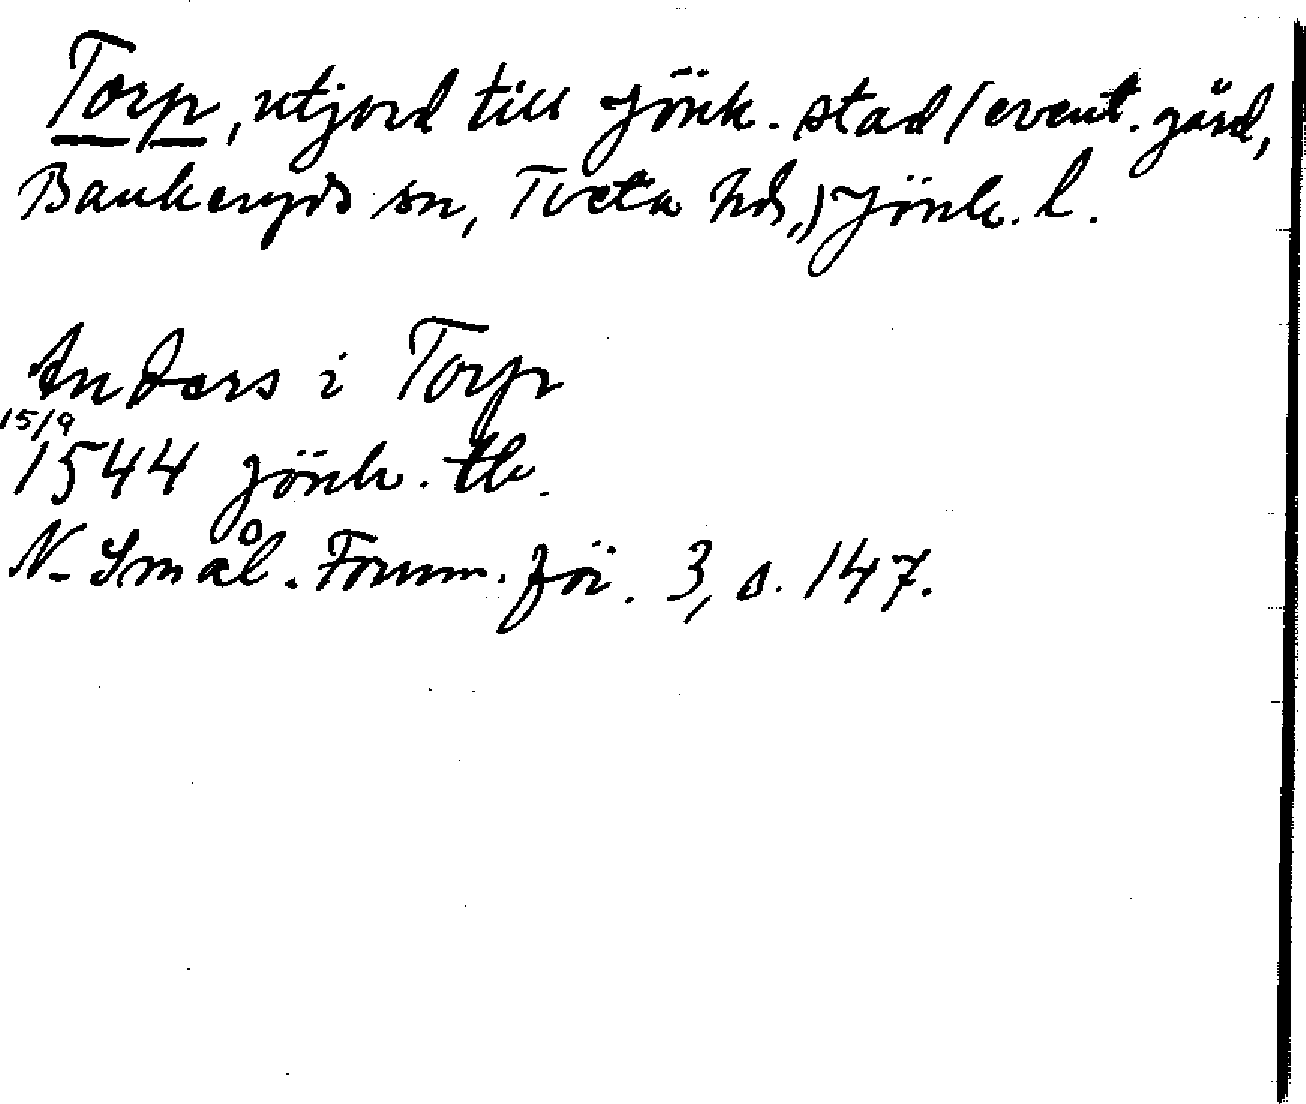 Torp, utjord till Jönk. stad (event. gård,
Bankeryds sn, Tveta hd,) Jönk. l.
Anders i Torp
15/9
1544 Jönk. tb.
N. Smål. Fornm. för. 3, s. 147.